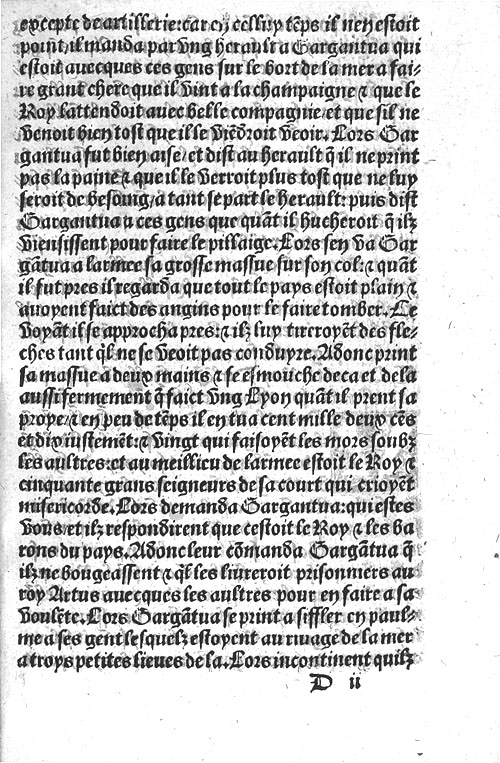 excepte de artillerie: car en celluy tẽps il nen estoit
point/ il manda par vng herault a Gargantua qui
estoit auecques ces gens sur le bort de la mer a fai⸗
re grant chere que il vint a la champaigne ⁊ que le
Roy lattendoit auec belle compagnie/ et que sil ne
venoit bien tost que il le viẽdroit veoir. Lors Gar
gantua fut bien aise/ et dist au herault q̃ il ne print
pas la paine ⁊ que il le verroit plus tost que ne luy
seroit de besoing/ a tant se part le herault: puis dist
Gargantua a ces gens que quãt il hucheroit q̃ ilz
viensissent pour faire le pillaige. Lors sen va Gar
gãtua a larmee sa grosse massue sur son col: ⁊ quãt
il fut pres il regarda que tout le pays estoit plain ⁊
auoyent faict des angins pour le faire tomber. Ce
voyãt il se approcha pres: ⁊ ilz luy tireroyẽt des fle⸗
ches tant q̃l ne se veoit pas conduyre. Adonc print
sa massue a deux mains ⁊ se esmouche deca et de la
aussi fermement q̃ faict vng Lyon quãt il prent sa
proye/ ⁊ en peu de tẽps il en tua cent mille deux cẽs
et dix iustemẽt: ⁊ vingt qui faisoyẽt les mors soubz
les aultres: et au meillieu de larmee estoit le Roy ⁊
cinquante grans seigneurs de sa court qui crioyẽt
misericorde. Lors demanda Gargantua: qui estes
vous/ et ilz respondirent que cestoit le Roy ⁊ les ba
rons du pays. Adonc leur cõmanda Gargãtua q̃
ilz ne bougeassent ⁊ q̃l les liureroit prisonniers au
roy Artus auecques les aultres pour en faire a sa
voulẽte. Lors Gargãtua se print a siffler en paul⸗
me a ses gent lesquelz estoyent au riuage de la mer
a troys petites lieues de la. Lors incontinent quilz
D ii